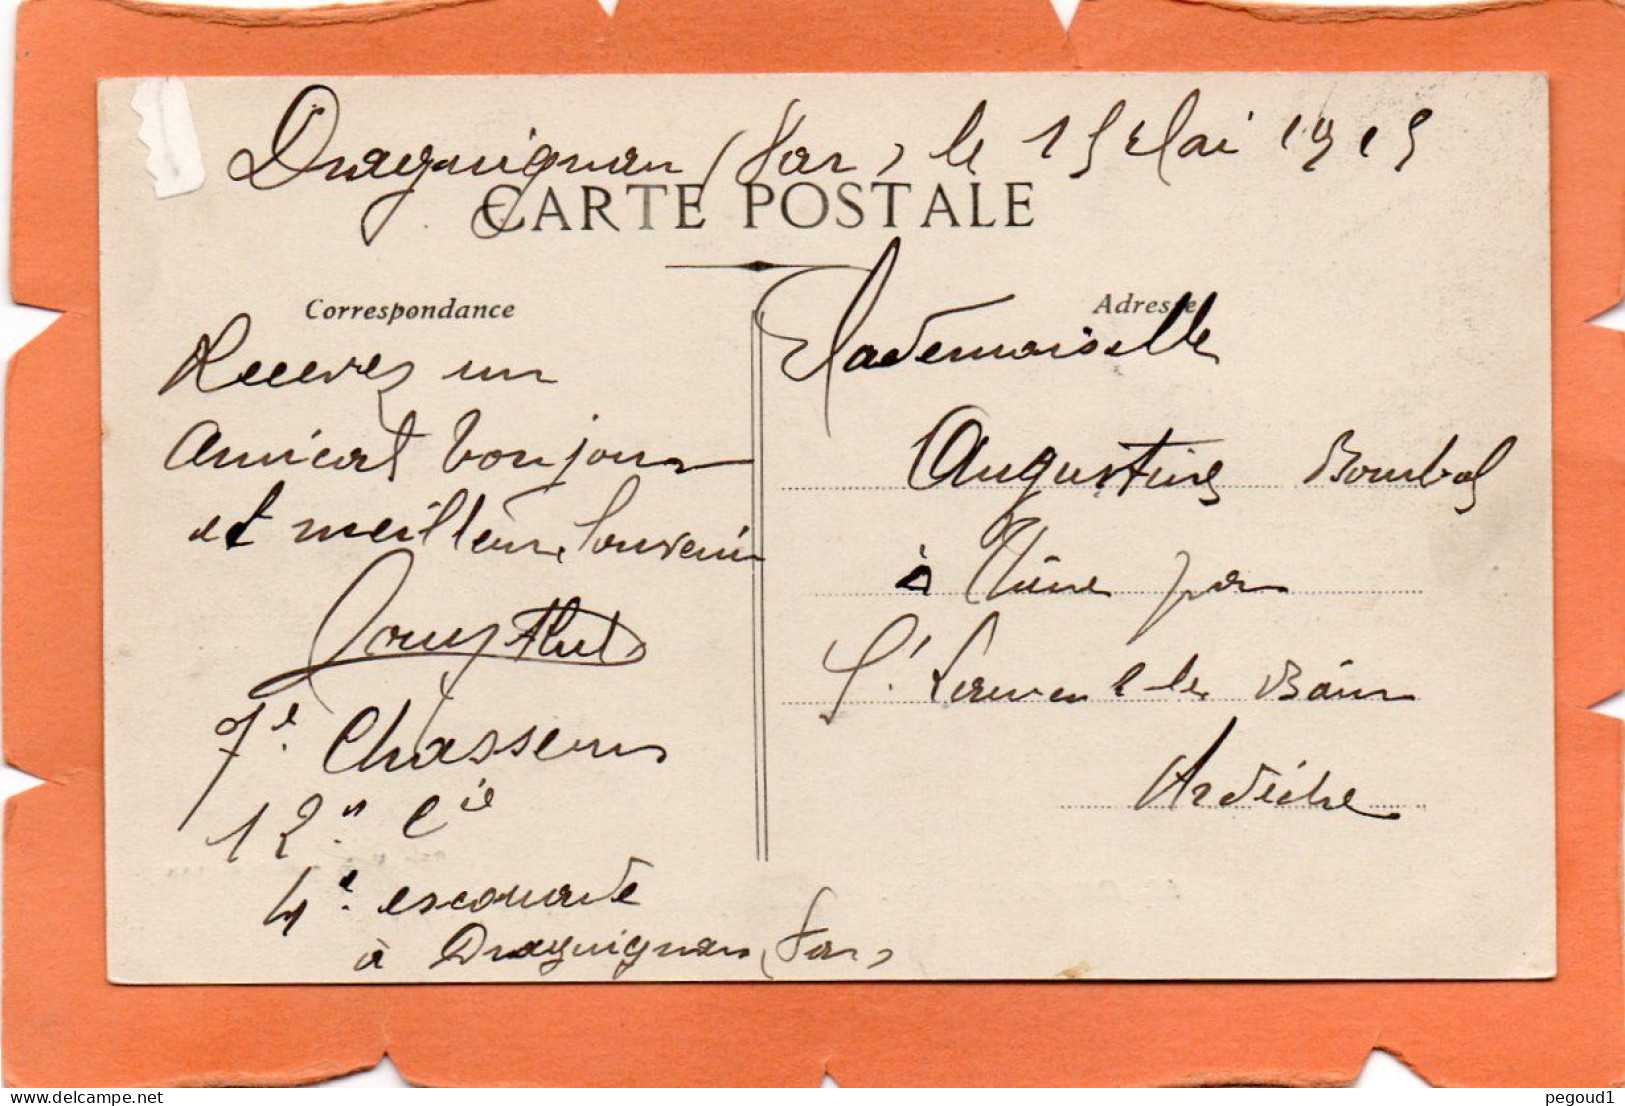 Draguignan (Var) le 15 Mai 1915
CARTE POSTALE
Correspondance
Recevez un
amical bonjour
et meilleur souvenir
7e. Chasseurs
12e Cie
4e. escouade
à Draguignan (Var)
Adresse
Mademoiselle
Augustine
à par
St. Laurent les Bains
Ardèche
delcampe.net
pegoud1